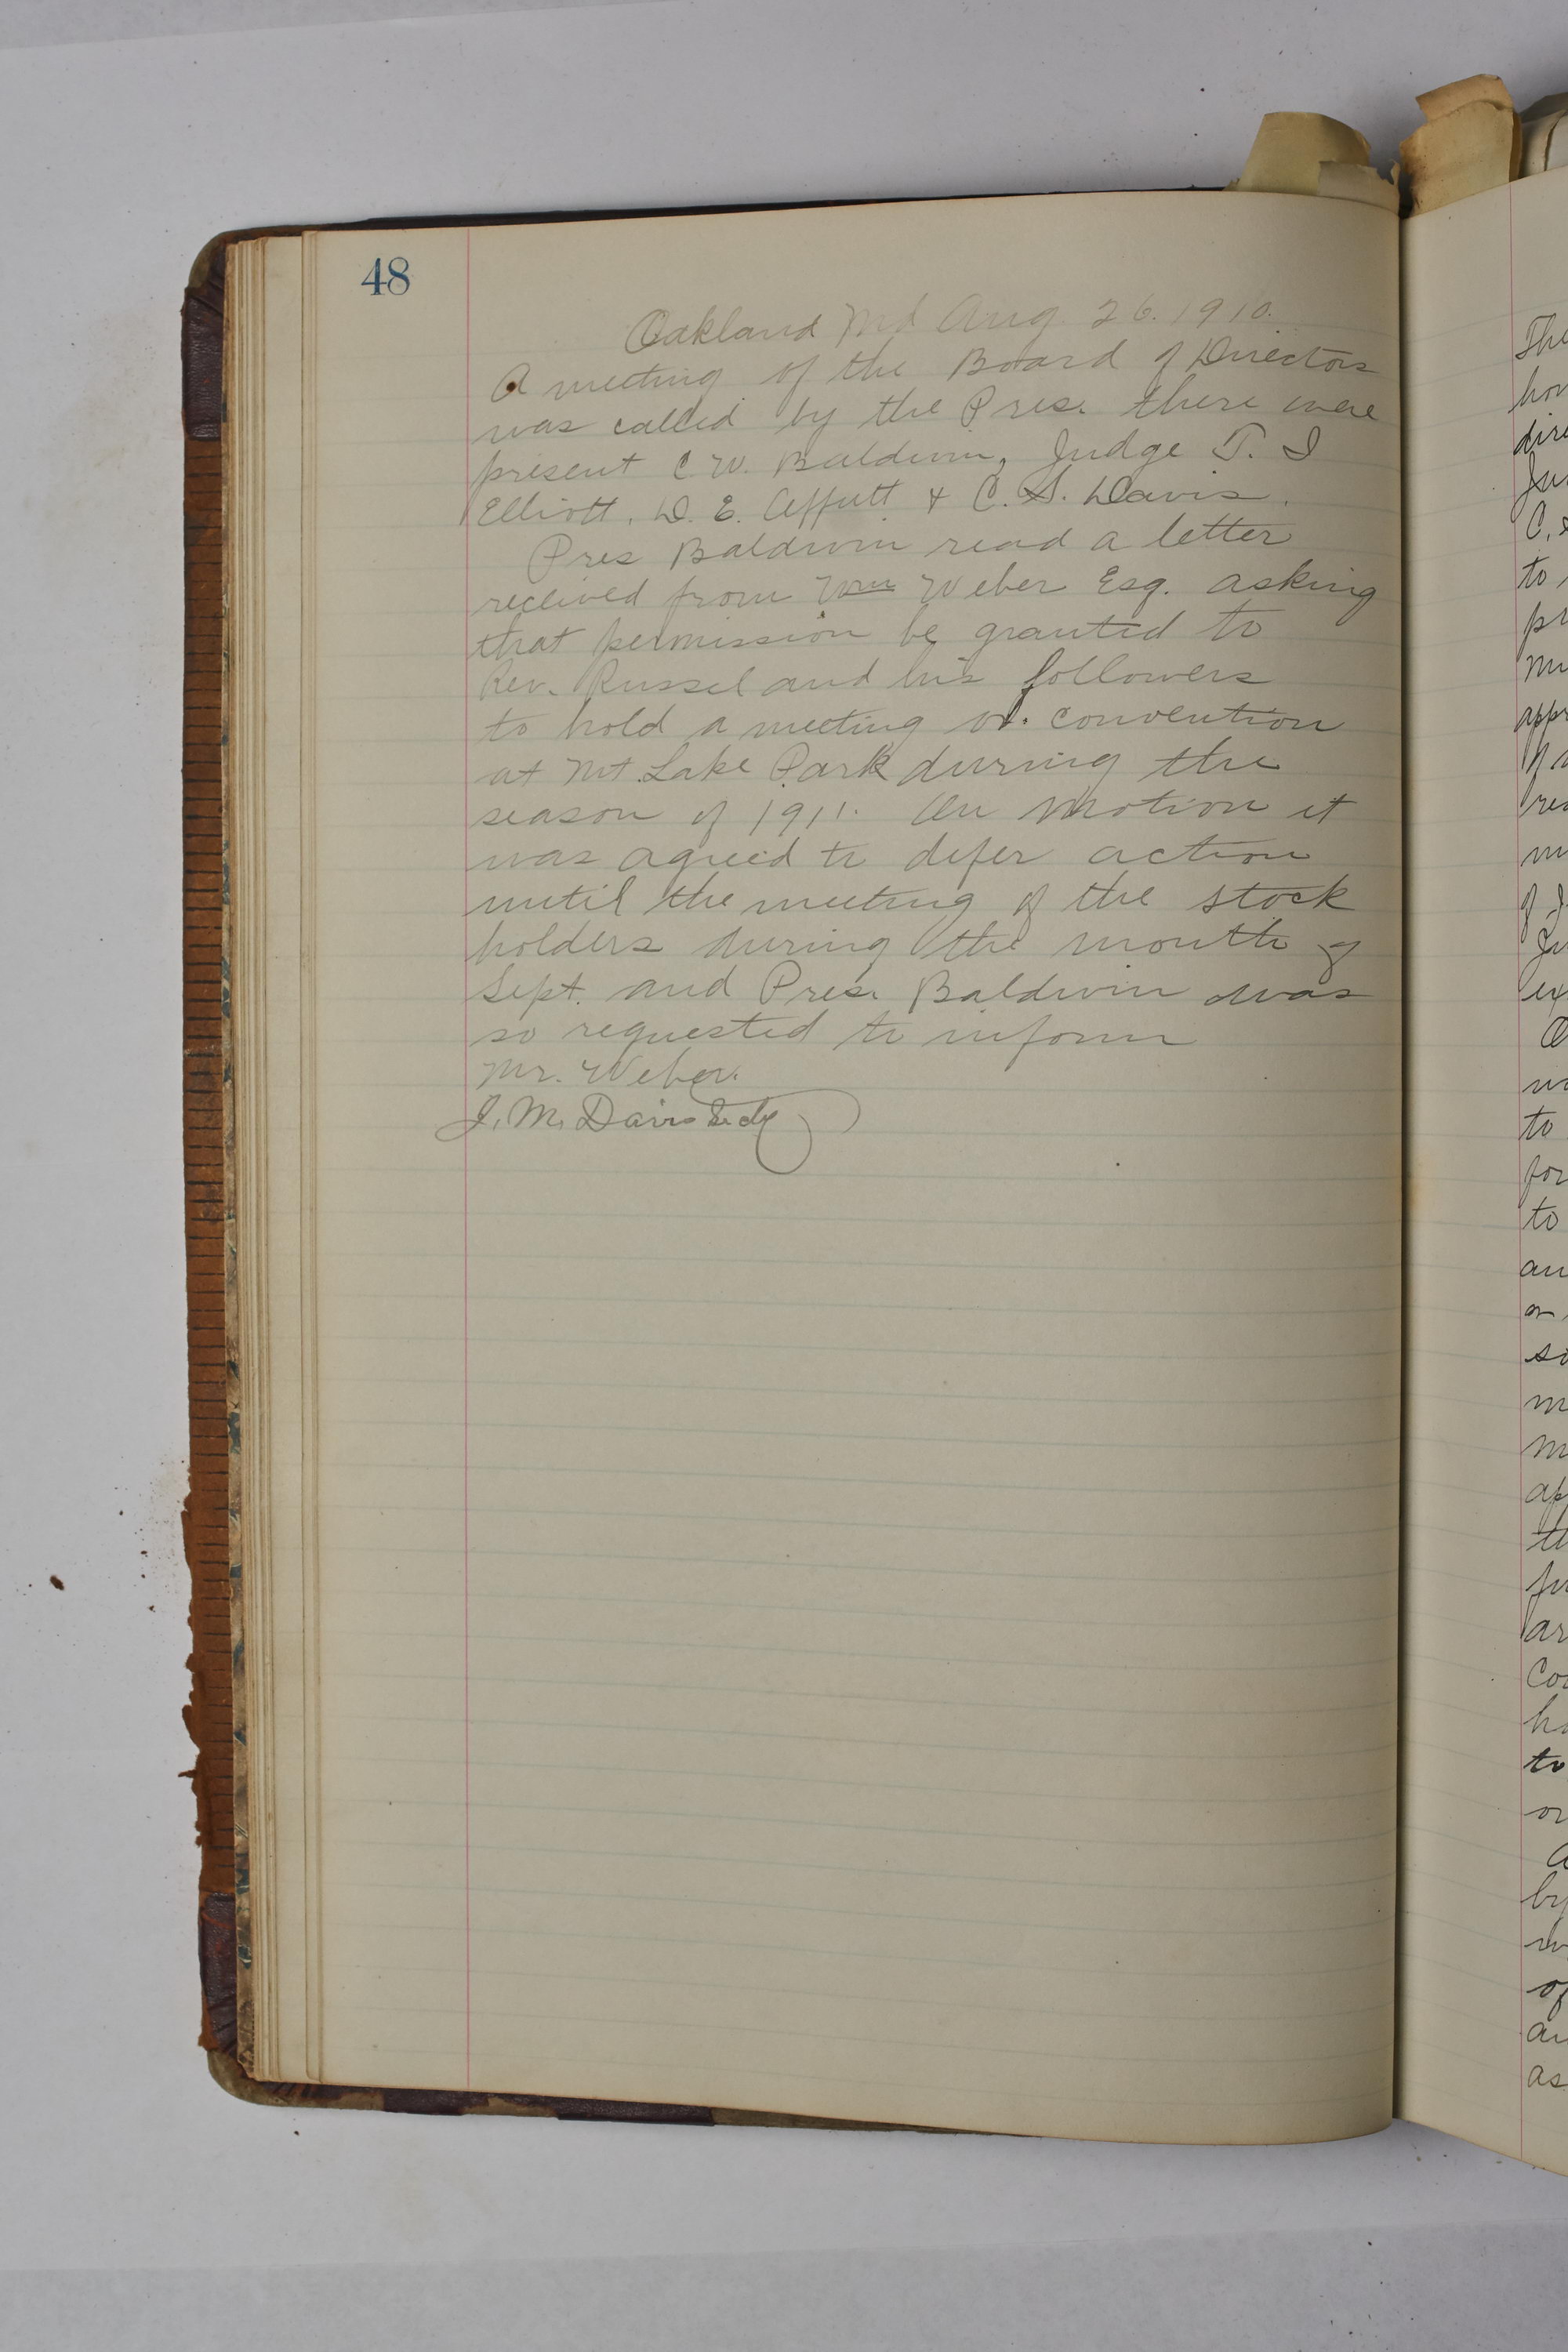 48
Oakland Md Aug. 26. 1910.
A meeting of the Board of Directors
was called by the Pres. there were
present C. W. Baldwin, Judge T. I
Elliott, D. E. Offutt & C. S. Davis.
Pres Baldwin read a letter
received from Wm Weber Esq. asking
that permission be granted to
Rev. Russel and his followers
to hold a meeting or convention
at Mt. Lake Park during the
season of 1911. On motion it
was agreed to defer action
until the meeting of the stock
holders during the month of
Sept. and Pres. Baldwin was
so requested to inform
Mr. Weber.
J. M. Davis Secty
The
to
for
to
to
of
as